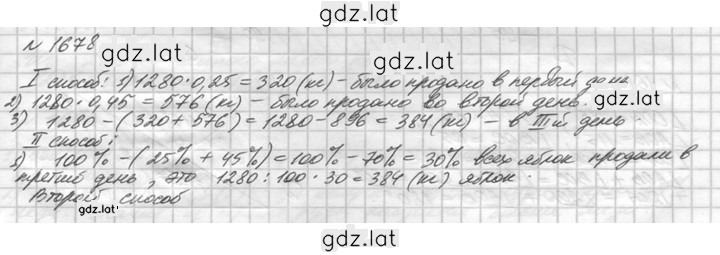 gdz.lat
№ 1678
gdz.lat
gdz.lat
I способ: 1) 1280 · 0,25 = 320 (кг) – было продано в первый
gdz.lat
2) 1280 · 0,45 = 576 (кг) – было продано во второй день.
3) 1280 – (320 + 576) = 1280 – 896 = 384 (кг) – в III й день.
II способ:
1) 100% – (25% + 45%) = 100% – 70% = 30% всех яблок продали в
третий день, это 1280 : 100 · 30 = 384 (кг) яблок.
Второй способ
gdz.lat
gdz.lat
gdz.lat